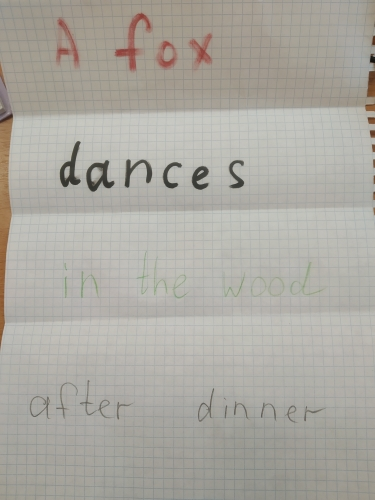 A fox
dances
in the wood
after dinner